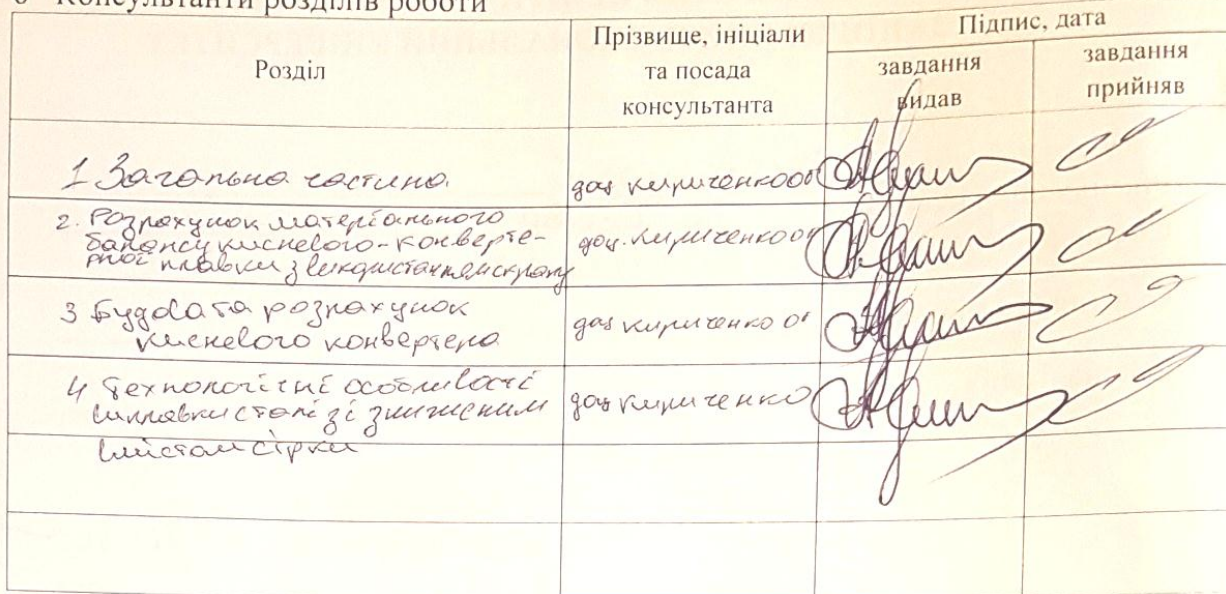 6 Консультанти розділів роботи
Розділ
Прізвище, ініціали
та посада
консультанта
Підпис, дата
завдання
видав
завдання
прийняв
1 Загальна частина.
доц Кириченко
2. Розрахунок матеріального
балансу кисневого-конверте-
рної плавки з використанням скрапу
доц. Кириченко
3 Будова та розрахунок
кисневого конвертера
доц Кириченко
4 Технологічні особливості
виплавки сталі зі зниженим
вмістом сірки
доц Кириченко